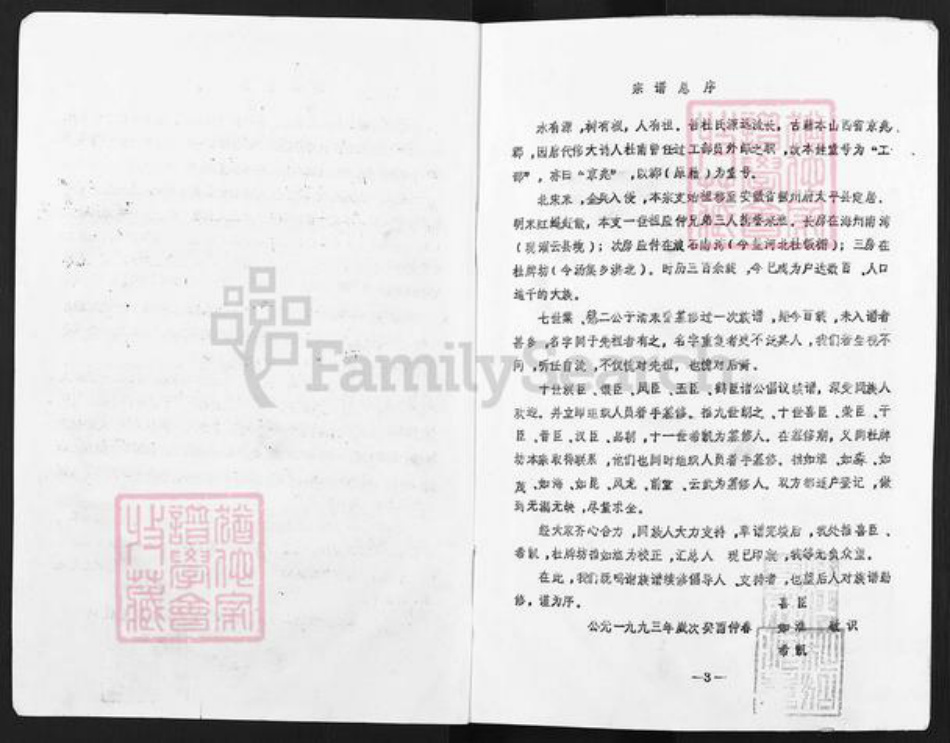 宗谱总序
水有源，树有根，人有祖。吾杜氏源远流长，古籍本山西省京兆
郡，因唐代伟大诗人杜甫曾任过工部员外郎之职，故本姓堂号为“工
部”，亦曰“京兆”，以郡（原籍）为堂号。
北宋末，金兵入侵，本宗支始祖移至安徽省徽州府太平县定居。
明末红蝇赶散，本支一世祖应仲兄弟三人携眷来淮，长房在海州南湾
（现灌云县境）；次房应付在波石南沟（今盖河北杜 ）；三房在
杜牌坊（今汤集乡洪北）。时历三百余载，今已成为户达数百，人口
逾千的大族。
七世 、 二公于清末曾纂修过一次族谱，距今百载，未入谱者
甚多，名字同于先祖者有之，名字重复者不乏其人，我们若坐视不
问，听任自流，不仅愧对先祖，也愧对后裔。
十世 臣、 臣、凤臣、玉臣、 臣诸公倡议续谱，深受同族人
欢迎。并立即组织人员着手纂修。推九世朝之、十世喜臣、荣臣、于
臣、晋臣、汉臣、品朝，十一世希凯为纂修人。在纂修期，又同杜牌
坊本家取得联系，他们也同时组织人员着手纂修。推如淮、如森、如
茂、如海、如昆、凤龙、前堂、云武为纂修人。双方都逐户登记，做
到无漏无缺，尽量求全。
经大家齐心合力，同族人大力支持，草谱完竣后，我处推喜臣、
希凯，杜牌坊推如淮为校正，汇总人 现已印 ，我等无负众望。
在此，我们既鸣谢族谱续修倡导人、支持者，也望后人对族谱勤
修，谨为序。
喜臣
公元一九九三年岁次癸酉仲春 如淮 敬识
希凯
—3—
FamilySearch